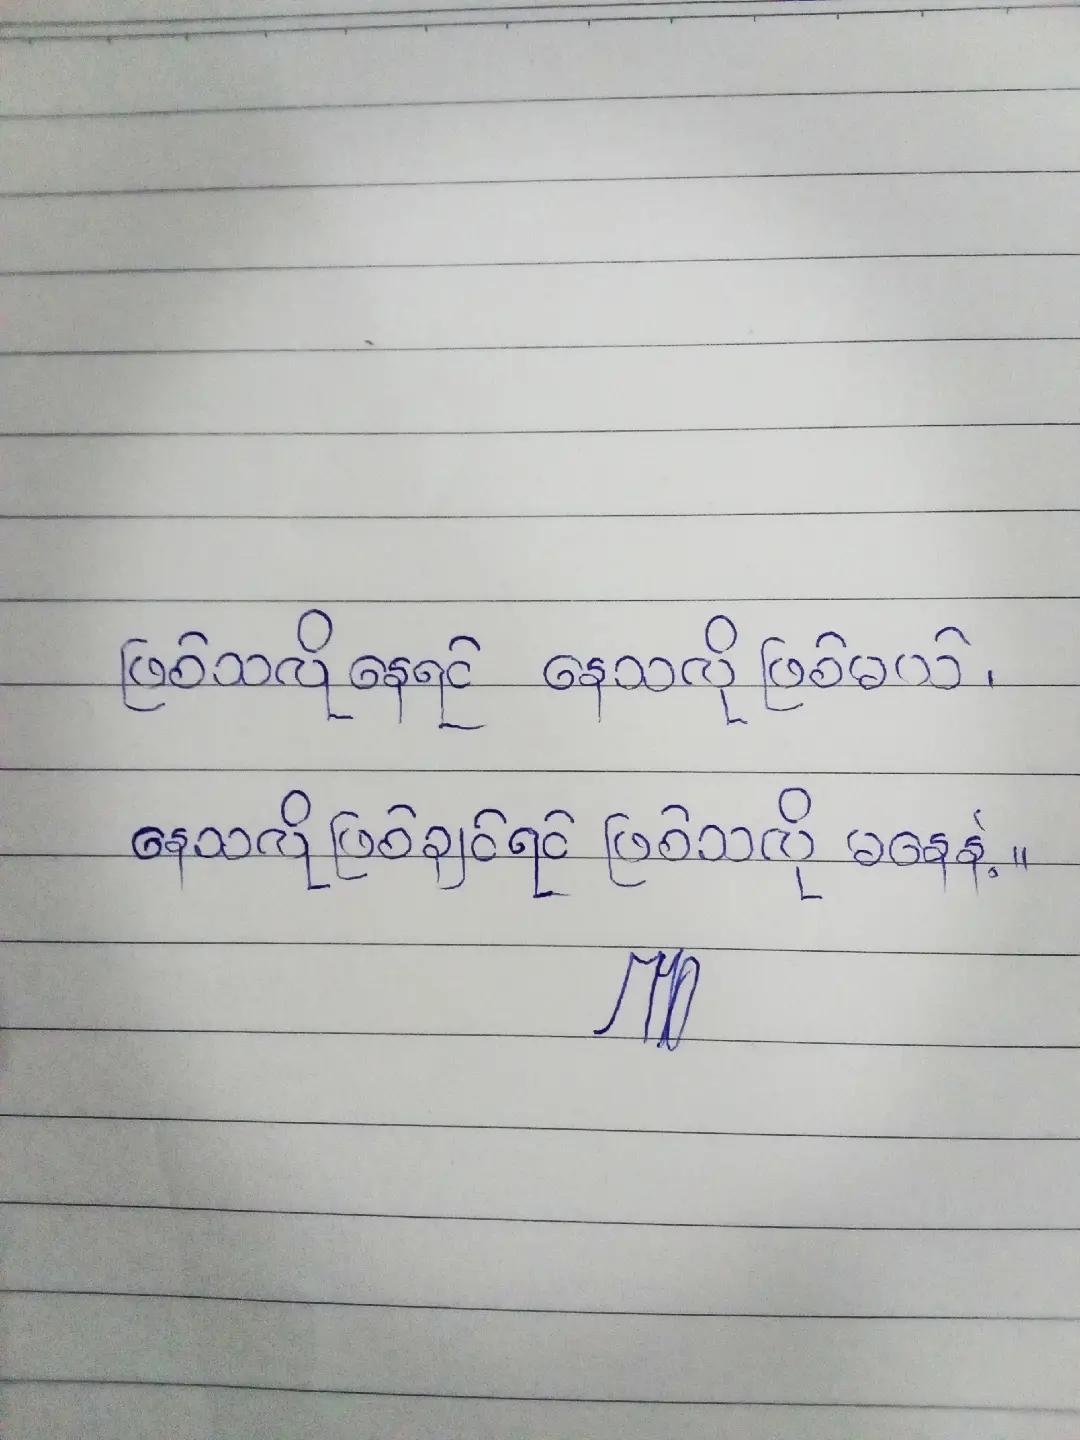 ဖြစ်သလိုနေရင် နေသလိုဖြစ်မယ်၊
နေသလိုဖြစ်ချင်ရင် ဖြစ်သလို မနေနဲ့။